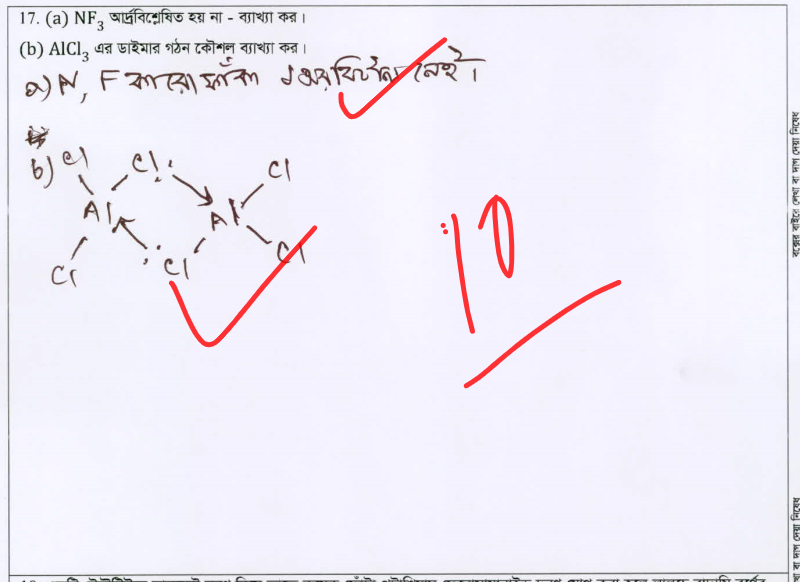 17. (a) NF3 আর্দ্রবিশ্লেষিত হয় না - ব্যাখ্যা কর।
(b) AlCl3 এর ডাইমার গঠন কৌশল ব্যাখ্যা কর।
a) N, F কারো ফাঁকা d অরবিটাল নেই।
b) Cl Cl Cl
Al Al
Cl Cl Cl
10
বক্সের বাইরে লেখা বা দাগ দেয়া নিষেধ